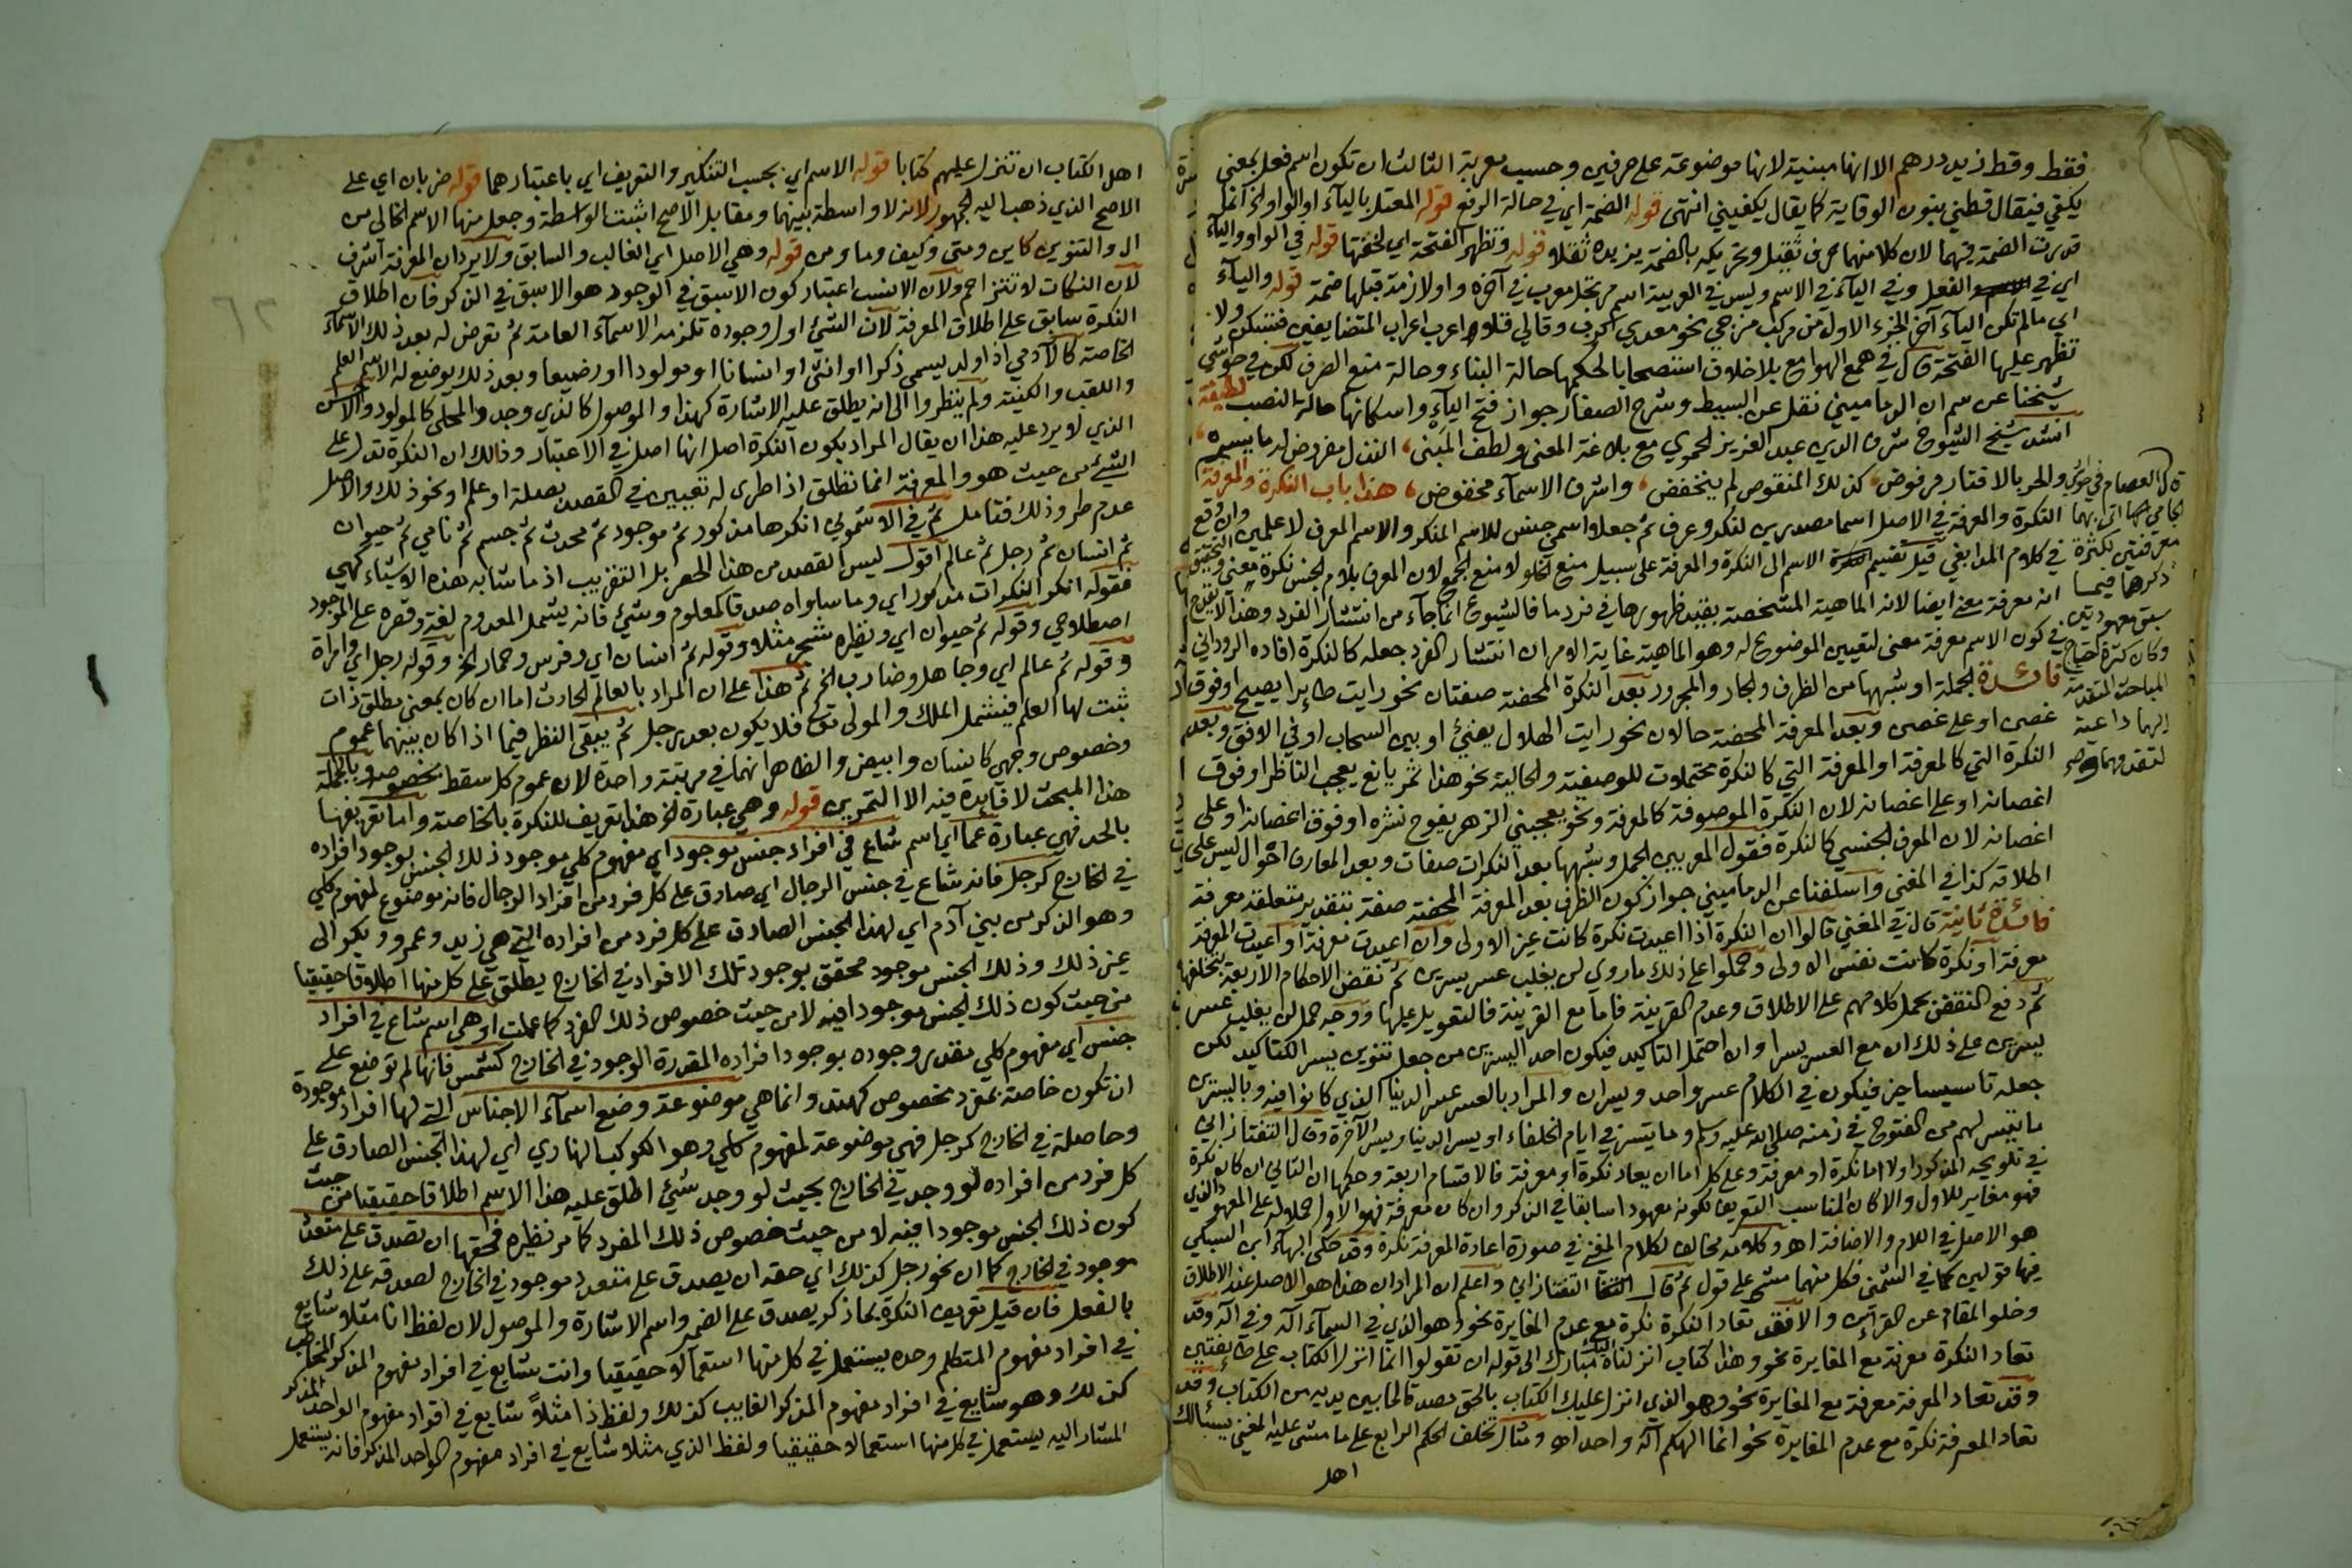 فقط وقط زيد درهم الا انها مبنية لانها موضوعة على حرفين وحسب معربة الثالث ان تكون اسم فعل بمعنى
يكفي فيقال قطني بنون الوقاية كما يقال يكفيني انتهى قوله الضمة اي في حالة الرفع قوله المعتل بالياء او الواو الخ انما
قدرت الضمة فيهما لان كلا منهما حرف ثقيل وتحريكه بالضمة يزيده ثقلا قوله وتظهر الفتحة اي لخفتها قوله في الواو والياء
اي في الفعل وفي الياء في الاسم وليس في العربية اسم مرتجل معرب في آخره واو لازمة قبلها ضمة قوله والياء
اي ما لم تكن الياء آخر الجزء الاول من مركب مزجي نحو معدي كرب وقالي قلا واعرب اعراب المتضايفين فتسكن ولا
تظهر عليها الفتحة قال في همع الهوامع بلا خلاف استصحابا لحكمها حالة البناء وحالة منع الصرف لكن في حواشي
شيخنا عن سم ان الدماميني نقل عن البسيط وشرح الصفار جواز فتح الياء واسكانها حالة النصب لطيفة
انشد شيخ الشيوخ شرف الدين عبد العزيز الحموي مع بلاغة المعنى ولطف المبنى
والحر بالاقتار مرفوض كذلك المنقوص لم ينخفض واشرف الاسماء مخفوض هذا باب النكرة والمعرفة
النكرة والمعرفة في الاصل اسما مصدرين لنكر وعرف ثم جعلا اسمي جنس للاسم المنكر والاسم المعرف لا علمين وان وقع
في كلام المدابغي قيل تقسيم الاسم الى النكرة والمعرفة على سبيل منع الخلو لا منع الجمع لان المعرف بلام الجنس نكرة معنى والتحقيق
انه معرفة معنى ايضا لانه الماهية المشخصة بقيد ظهورها في فرد ما فالشيوع انما جاء من انتشار الفرد وهذا لا يقدح
في كون الاسم معرفة معنى لتعيين الموضوع له وهو الماهية غاية الامر ان انتشار الفرد جعله كالنكرة افاده الروداني
فائدة الجملة او شبهها من الظرف والجار والمجرور بعد النكرة المحضة صفتان نحو رايت طايرا يصيح او فوق
غصن او على غصن وبعد المعرفة المحضة حالان نحو رايت الهلال يضيء او بين السحاب او في الافق وبعد
النكرة التي كالمعرفة او المعرفة التي كالنكرة محتملات للوصفية والحالية نحو هذا ثمر يانع يعجب الناظر او فوق
اغصانه او على اغصانه لان النكرة الموصوفة كالمعرفة ونحو يعجبني الزهر يفوح نشره او فوق اغصانه او على
اغصانه لان المعرف الجنسي كالنكرة فقول المعربين الجمل وشبهها بعد النكرات صفات وبعد المعارف احوال ليس على
اطلاقه كذا في المغنى واسلفنا عن الدماميني جواز كون الظرف بعد المعرفة المحضة صفة بتقدير متعلقة معرفة
فائدة ثانية قال في المغني قالوا ان النكرة اذا اعيدت نكرة كانت غير الاولى وان اعيدت معرفة او اعيدت المعرفة
معرفة او نكرة كانت نفس الاولى وحملوا على ذلك ما روي لن يغلب عسر يسرين ثم نقض الاحكام الاربعة بتخلفها
ثم دفع النقض بحمل كلامهم على الاطلاق وعدم القرينة فاما مع القرينة فالتعويل عليها ووجه حمل لن يغلب عسر
يسرين على ذلك ان مع العسر يسرا وان احتمل التاكيد فيكون احد اليسرين من جعل تنوين يسر الكتاكيد لكن
جعله تاسيسا خير فيكون في الكلام عسر واحد ويسران والمراد بالعسر عسر الدنيا الذي كانوا فيه وباليسرين
ما تيسر لهم من الفتوح في زمنه صلى الله عليه وسلم وما يتسر في ايام الخلفاء او يسر الدنيا ويسر الآخرة وقال التفتازاني
في تلويحه المذكور اولا اما نكرة او معرفة وعلى كل اما ان يعاد نكرة او معرفة فالاقسام اربعة وحكمها ان الثاني ان كان نكرة
فهو مغاير للاول والا كان المناسب التعريف لكونه معهودا سابقا في الذكر وان كان معرفة فهو الاول حملا له على المعهود الذي
هو الاصل في اللام والاضافة اهـ وكلامه مخالف لكلام المغني في صورة اعادة المعرفة نكرة وقد حكى البهاء ابن السبكي
فيها قولين كما في الشمني فكل منهما مشى على قول ثم قال التفتازاني واعلم ان المراد ان هذا هو الاصل عند الاطلاق
وخلو المقام عن القرائن والا فقد تعاد النكرة نكرة مع عدم المغايرة نحو وهو الذي في السماء اله وفي الارض اله وقد
تعاد النكرة معرفة مع المغايرة نحو وهذا كتاب انزلناه اليك مبارك الى قوله ان تقولوا انما انزل الكتاب على طايفتين
وقد تعاد المعرفة معرفة مع المغايرة نحو وهو الذي انزل عليك الكتاب بالحق مصدقا لما بين يديه من الكتاب وقد
تعاد المعرفة نكرة مع عدم المغايرة نحو انما الهكم اله واحد اهـ ومثال تخلف الحكم الرابع على ما مشى عليه المغني يسالك
اهل
اهل الكتاب ان تنزل عليهم كتابا قوله الاسم اي بحسب التنكير والتعريف اي باعتبارهما قوله ضربان اي على
الاصح الذي ذهب اليه الجمهور لانه لا واسطة بينهما ومقابل الاصح اثبت الواسطة وجعل منها الاسم الخالي من
ال والتنوين كاين ومتى وكيف وما ومن قوله وهي الاصل اي الغالب والسابق ولا يرد ان المعرفة اشرف
لان النكات لا تتزاحم ولان الانسب اعتبار كون الاسبق في الوجود هو الاسبق في الذكر فان اطلاق
النكرة سابق على اطلاق المعرفة لان الشيء اول وجوده تلزمه الاسماء العامة ثم تعرض له بعد ذلك الاسماء
الخاصة كالآدمي اذا ولد يسمى ذكرا او انثى او انسانا او مولودا او رضيعا وبعد ذلك يوضع له الاسم العلم
واللقب والكنية ولم ينظروا الى انه يطلق عليه الاشارة كهذا والموصول كالذي وجد والمحلى كالمولود والانس
الذي لا يرد عليه هذا ان يقال المراد بكون النكرة اصلا انها اصل في الاعتبار وذلك ان النكرة تدل على
الشيء من حيث هو والمعرفة انما تطلق اذا طرى له تعيين في القصد بصلة او علم او نحو ذلك والاصل
عدم طرو ذلك فتامل ثم في الاشموني انكرها مذكور ثم موجود ثم محدث ثم جسم ثم نامي ثم حيوان
ثم انسان ثم رجل ثم عالم اقول ليس القصد من هذا الحصر بل التقريب اذ ما شابه هذه الاشياء كهي
فقوله انكر النكرات مذكور اي وما ساواه صدقا كمعلوم وشيء فانه يشمل المعدوم لغة وقصره على الموجود
اصطلاحي وقوله ثم حيوان اي ونظيره شجر مثلا وقوله ثم انسان اي وفرس وحمار الخ وقوله رجل اي وامراة
وقوله ثم عالم اي وجاهل وضارب الخ ثم هذا على ان المراد بالعالم الحادث اما ان كان بمعنى مطلق ذات
ثبت لها العلم فيشمل الملك والمولى تع فلا يكون بعد رجل ثم يبقى النظر فيما اذا كان بينهما عموم
وخصوص وجهي كانسان وابيض والظاهر انهما في مرتبة واحدة لان عموم كل سقط بخصوصه وبالجملة
هذا المبحث لا فايدة فيه الا التمرين قوله وهي عبارة الخ هذا تعريف للنكرة بالخاصة واما تعريفها
بالحد فهي عبارة عما اي اسم شاع في افراد جنس موجود اي مفهوم كلي موجود ذلك الجنس بوجود افراده
في الخارج كرجل فانه شاع في جنس الرجال اي صادق على كل فرد من افراد الرجال فانه موضوع لمفهوم كلي
وهو الذكر من بني آدم اي لهذا الجنس الصادق على كل فرد من افراده التي هي زيد وعمرو وبكر الى
غير ذلك وذلك الجنس موجود محقق بوجود تلك الافراد في الخارج يطلق على كل منها اطلاقا حقيقيا
من حيث كون ذلك الجنس موجودا فيه لا من حيث خصوص ذلك الفرد كما علمت او هي اسم شاع في افراد
جنس اي مفهوم كلي مقدر وجوده بوجود افراده المقدرة الوجود في الخارج كشمس فانها لم توضع على
ان تكون خاصة بمفرد مخصوص كهند وانما هي موضوعة وضع اسماء الاجناس التي لها افراد موجودة
وحاصلة في الخارج كرجل فهي موضوعة لمفهوم كلي وهو الكوكب النهاري اي لهذا الجنس الصادق على
كل فرد من افراده لو وجد في الخارج بحيث لو وجد شيء اطلق عليه هذا الاسم اطلاقا حقيقيا من حيث
كون ذلك الجنس موجودا فيه لا من حيث خصوص ذلك المفرد كما مر نظيره فحقها ان تصدق على متعدد
موجود في الخارج كما ان نحو رجل كذلك اي حقه ان يصدق على متعدد موجود في الخارج لصدقه على ذلك
بالفعل فان قيل تعريف النكرة بما ذكر يصدق على الضمير واسم الاشارة والموصول لان لفظ انا مثلا شايع
في افراد مفهوم المتكلم وحده يستعمل في كل منها استعمالا حقيقيا وانت شايع في افراد مفهوم المذكر المخاطب
كذلك وهو شايع في افراد مفهوم المذكر الغايب كذلك ولفظ ذا مثلا شايع في افراد مفهوم الواحد المذكر
المشار اليه يستعمل في كل منها استعمالا حقيقيا ولفظ الذي مثلا شايع في افراد مفهوم الواحد المذكر فانه يستعمل